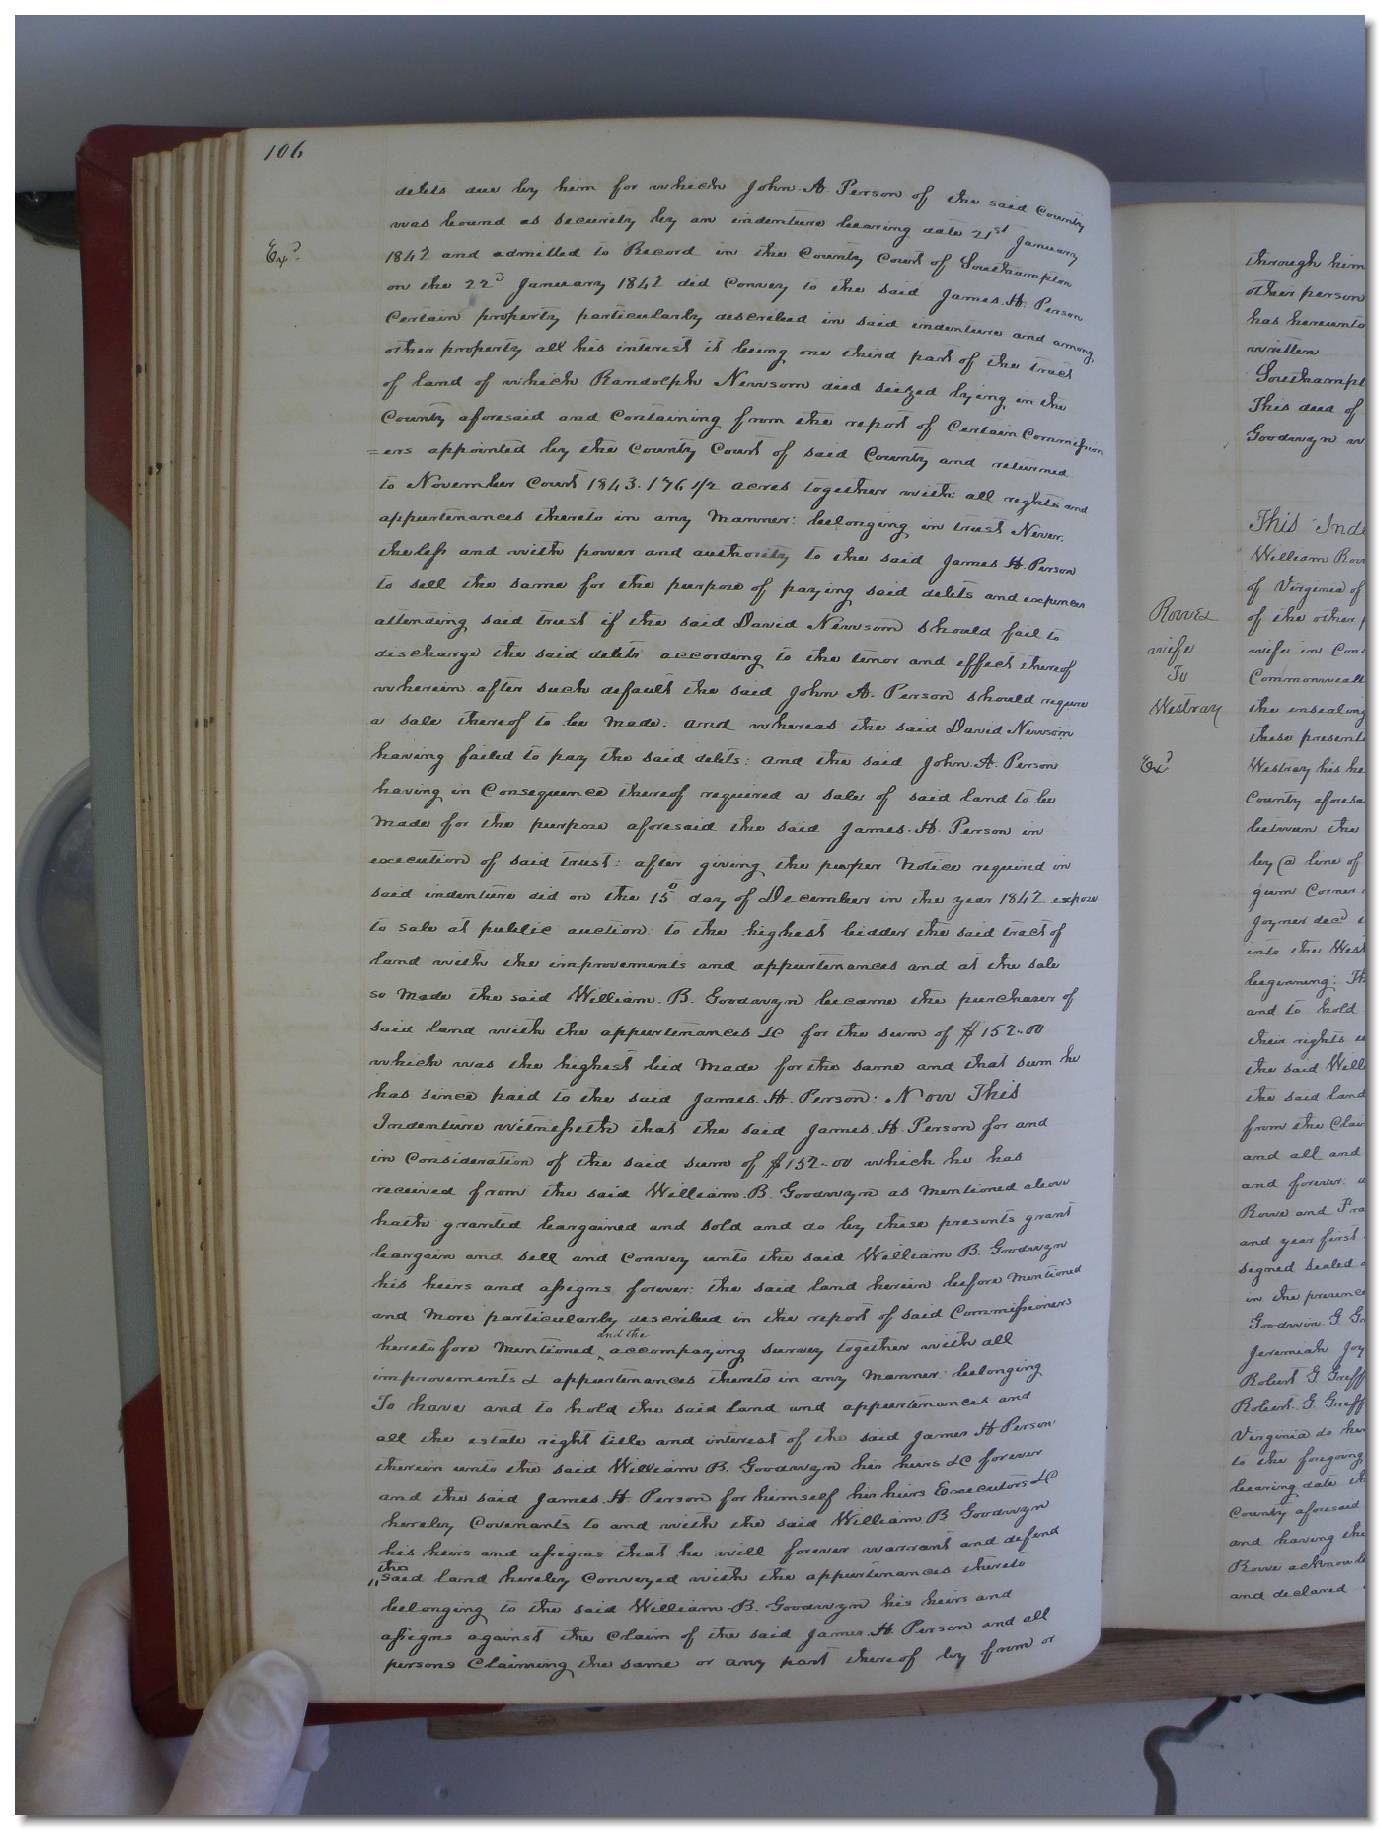 106
debts due by him for which John. A. Person of the said County
was bound as security by an indenture bearing date 21st January
Exd
1842 and admitted to Record in the County Court of Southampton
on the 22d January 1842 did Convey to the said James. H. Person
Certain property particularly described in said indenture and among
other property all his interest it being one third part of the tract
of land of which Randolph Newsom died seized lying in the
County aforesaid and Containing from the report of Certain Commission
=ers appointed by the County Court of said County and returned
to November Court 1843. 176 1/2 acres together with all rights and
appurtenances thereto in any Manner: belonging in trust Never.
theless and with power and authority to the said James H. Person
to sell the same for the purpose of paying said debts and expences
attending said trust if the said David Newsom should fail to
discharge the said debts according to the tenor and effect thereof
wherein after such default the said John A. Person should require
a sale thereof to be Made. and whereas the said David Newsom
having failed to pay the said debts: and the said John. A. Person
having in Consequence thereof required a sale of said land to be
Made for the purpose aforesaid the said James. H. Person in
execution of said trust: after giving the proper Notice required in
said indenture did on the 15th day of December in the year 1842 expose
to sale at public auction to the highest bidder the said tract of
land with the improvements and appurtenances and at the sale
so Made the said William. B. Goodwyn became the purchaser of
said land with the appurtenances &C for the sum of $152.00
which was the highest bid Made for the same and that sum he
has since paid to the said James. H. Person: Now This
Indenture witnesseth that the said James. H. Person for and
in Consideration of the said sum of $152.00 which he has
received from the said William. B. Goodwyn as Mentioned above
hath granted bargained and sold and do by these presents grant
bargain and sell and Convey unto the said William B. Goodwyn
his heirs and assigns forever: the said land herein before Mentioned
and More particularly described in the report of said Commissioners
and the
heretofore Mentioned accompaying survey together with all
improvements & appurtenances thereto in any Manner belonging
To have and to hold the said land and appurtenances and
all the estate right title and interest of the said James H Person
therein unto the said William B. Goodwyn his heirs &C forever
and the said James. H Person for himself his heirs Executors &C
hereby Covenants to and with the said William B Goodwyn
his heirs and assigns that he will forever warrant and defend
the
said land hereby Conveyed with the appurtenances thereto
belonging to the said William. B. Goodwyn his heirs and
assigns against the Claim of the said James. H. Person and all
persons Claiming the same or any part thereof by from or
through him
other person
has hereunto
written
Southampt
This deed of
Goodwyn w
This Inde
William Row
of Virginia of
Rowe &
of the other p
wife
wife in Con
To
Commonwealt
Westray
the ensealing
these present
Exd
Westray his he
County aforesa
between the
by @ line of
gum Corner
Joyner decd
into the West
beginning: Th
and to hold
their rights
the said Will
the said land
from the Clai
and all and
and forever.
Rowe and Fra
and year first
signed sealed
in the presence
Goodwin. G. Gr
Jeremiah Joy
Robert G. Griff
Robert. G. Griff
Virginia do her
to the foregoing
bearing date th
County aforesaid
and having the
Rowe acknowle
and declared